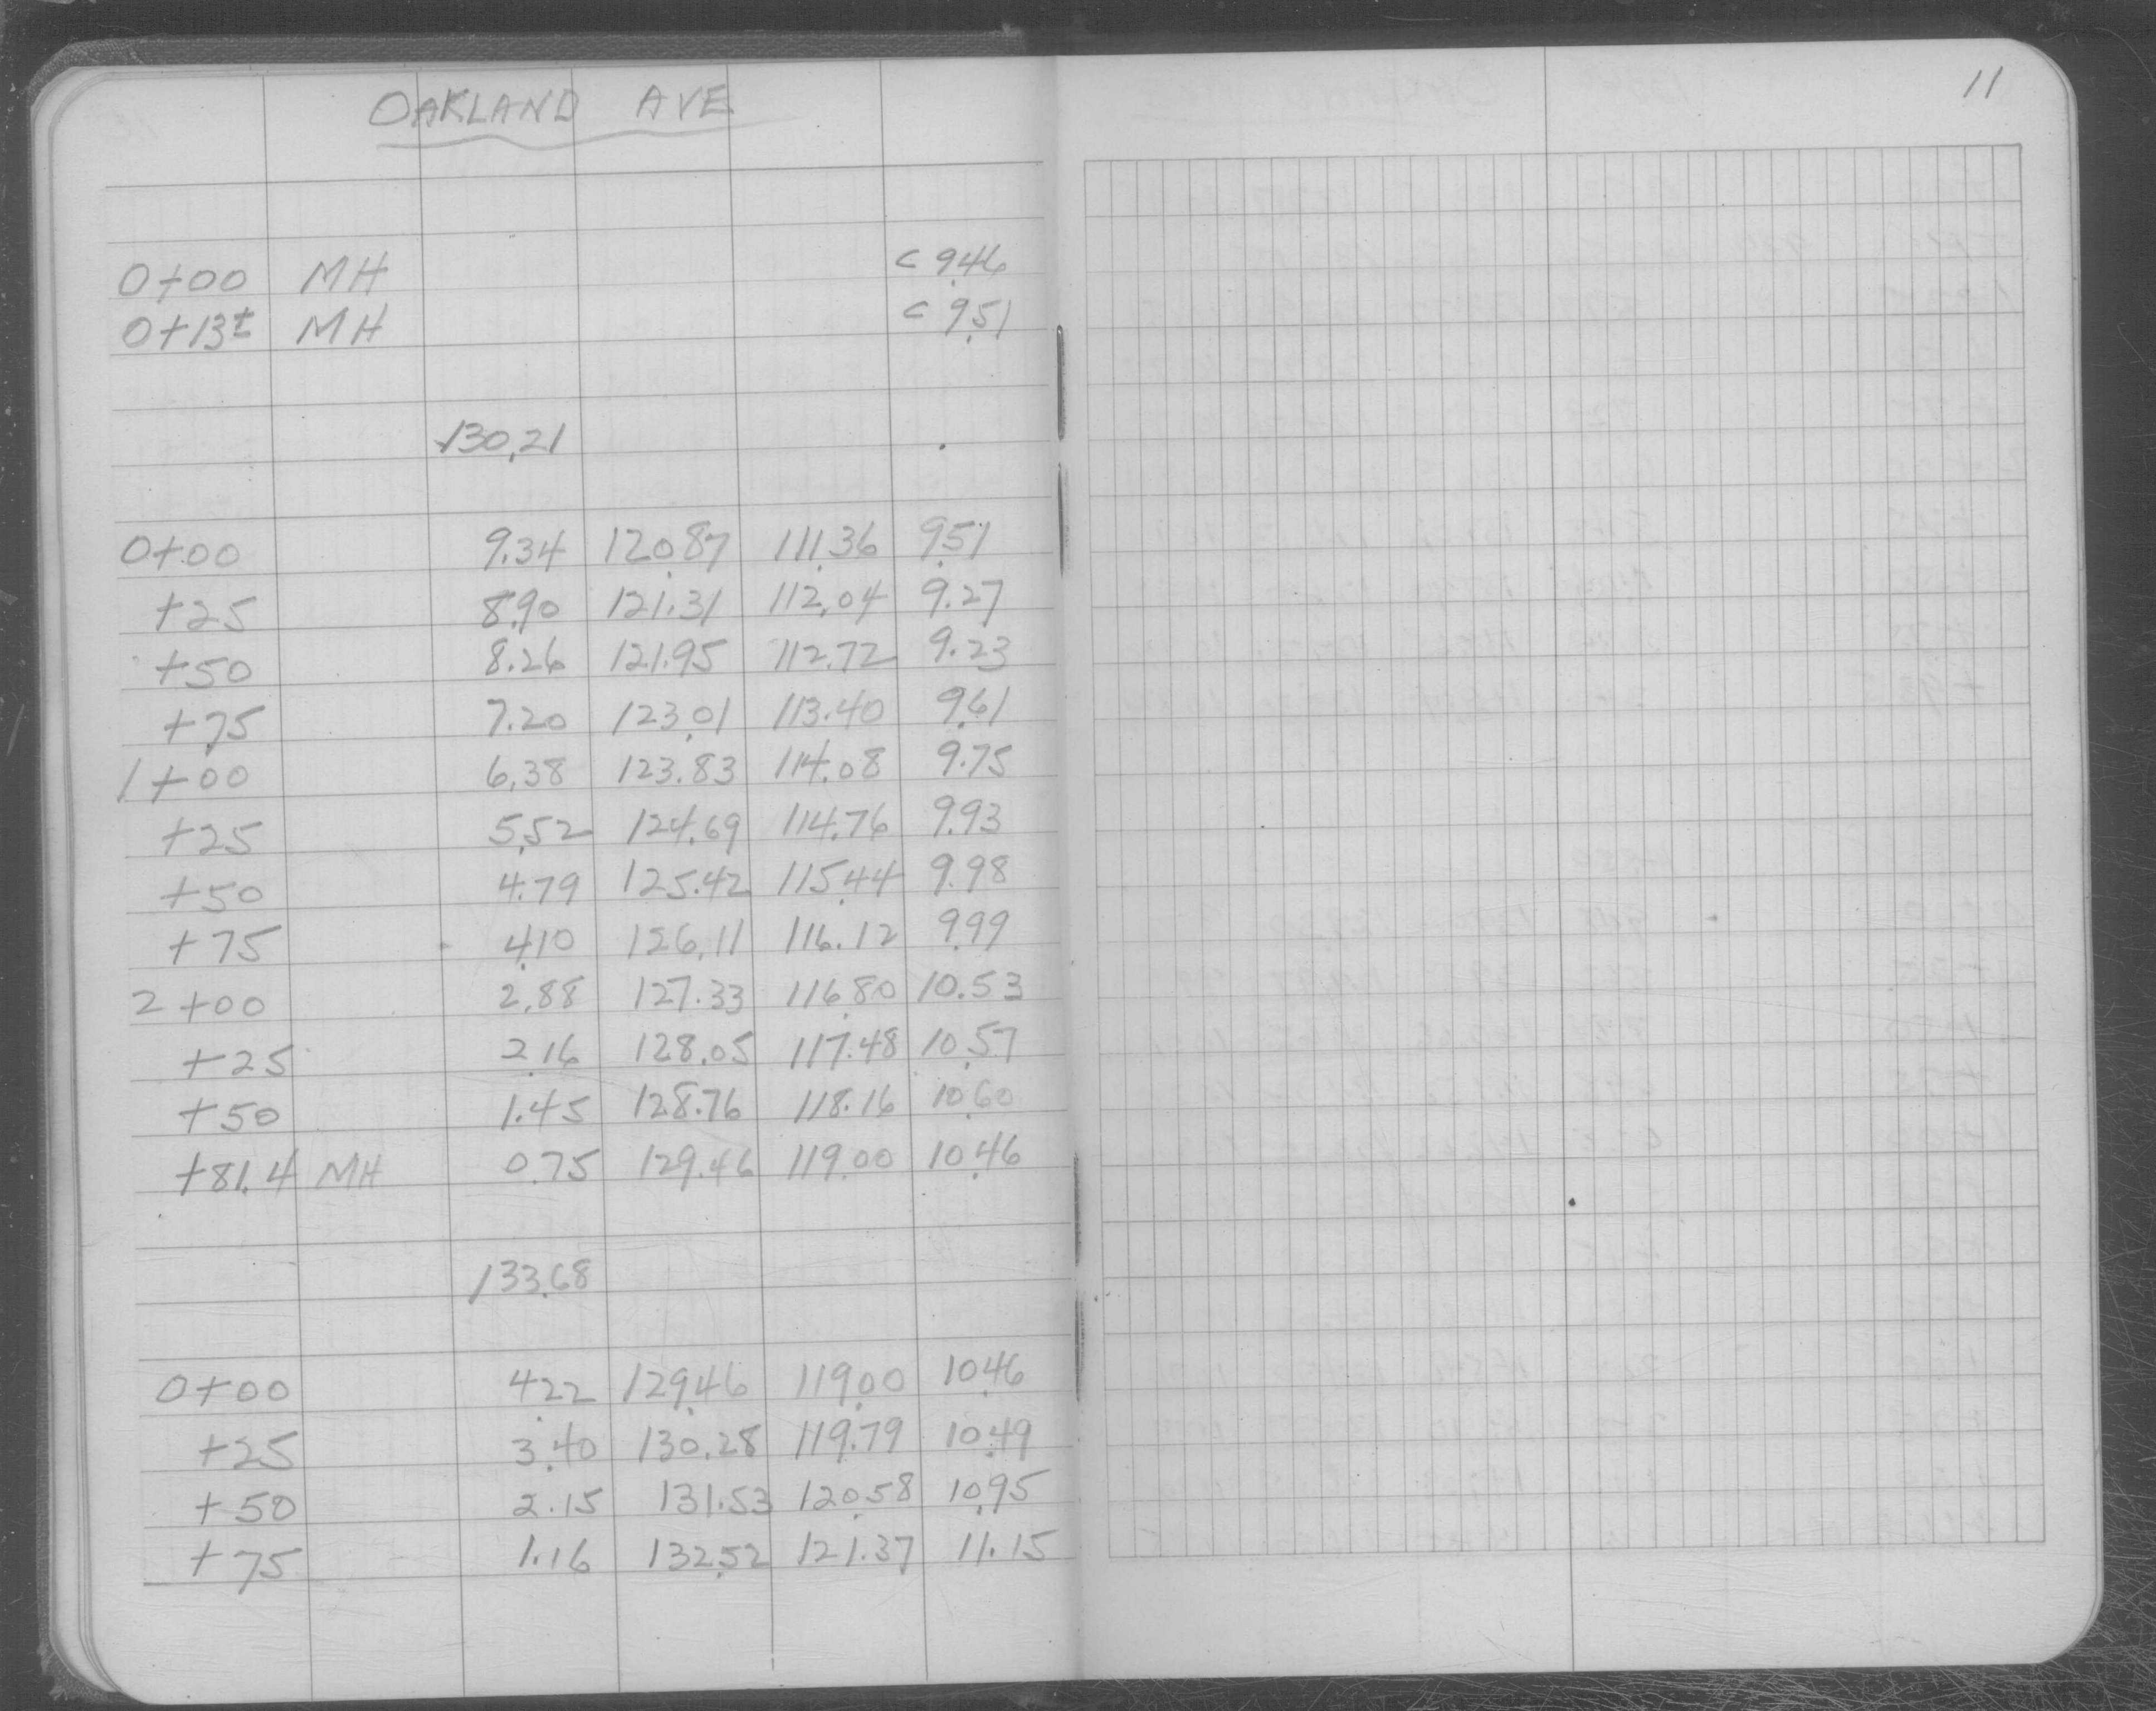 OAKLAND AVE
11
0+00 MH C 9.46
0+13± MH C 9.51
130.21
0+00 9.34 120.87 111.36 9.51
+25 8.90 121.31 112.04 9.27
+50 8.26 121.95 112.72 9.23
+75 7.20 123.01 113.40 9.61
1+00 6.38 123.83 114.08 9.75
+25 5.52 124.69 114.76 9.93
+50 4.79 125.42 115.44 9.98
+75 4.10 126.11 116.12 9.99
2+00 2.88 127.33 116.80 10.53
+25 2.16 128.05 117.48 10.57
+50 1.45 128.76 118.16 10.60
+81.4 MH 0.75 129.46 119.00 10.46
133.68
0+00 4.22 129.46 119.00 10.46
+25 3.40 130.28 119.79 10.49
+50 2.15 131.53 120.58 10.95
+75 1.16 132.52 121.37 11.15